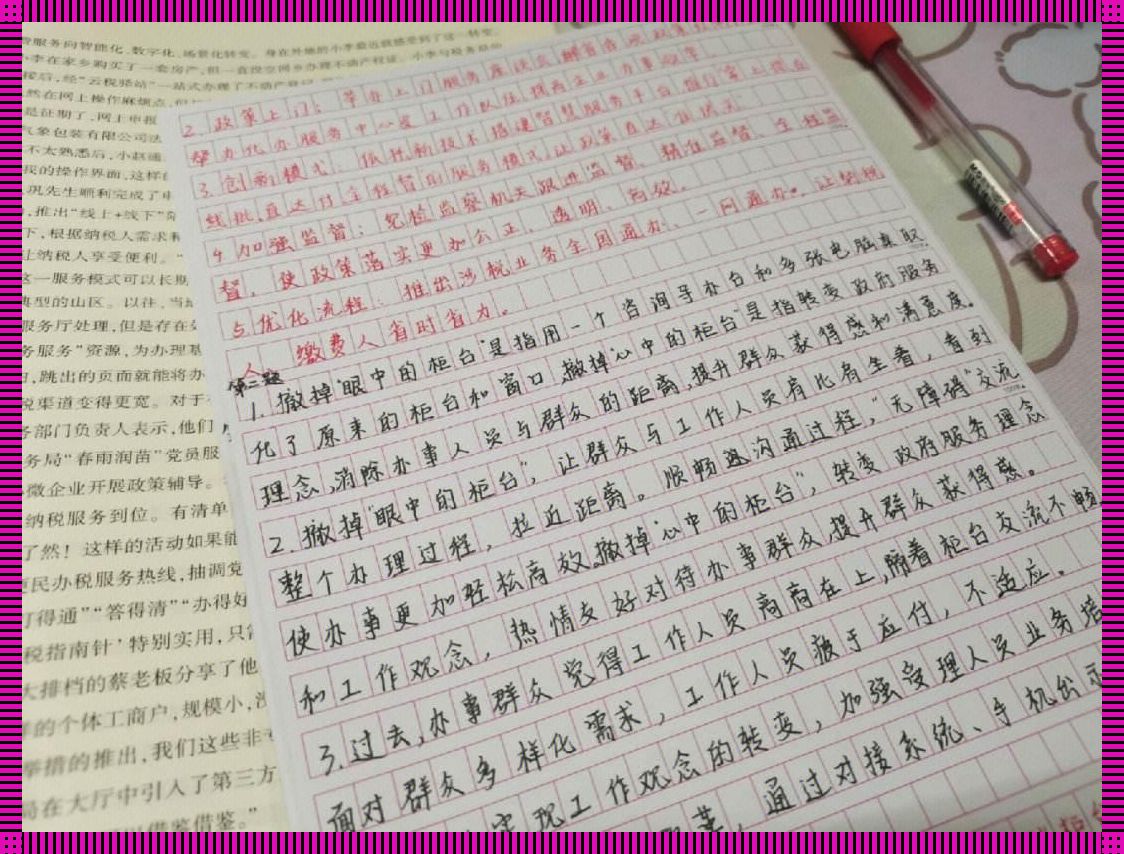 服务向智能化、数字化、场景化转变。身在外地的小李最近就感受到了这一转变。
小李在家乡购买了一套房产,但一直没空回乡办理不动产权证。小李与税务局的
然在网上操作麻烦点,但
是征期了,网上申报
气象包装有限公司法
不太熟悉后,小赵通
我的操作界面,这样
巩先生顺利完成了申
,推出“线上+线下”
下,根据纳税人需求
让纳税人享受便利。
这一服务模式可以长期
典型的山区。以往,当
服务厅处理,但是存在
务服务”资源,为办理
,跳出的页面就能将办
税渠道变得更宽。对于
务部门负责人表示,他们
务局“春雨润苗”党员服
小微企业开展政策辅导。
纳税服务到位。有清单
了然!这样的活动如果能
便民办税服务热线,抽调党
打得通”“答得清”“办得好
税指南针’特别实用,只需
大排档的蔡老板分享了他
样的个体工商户,规模小,
举措的推出,我们这些非
局在大厅中引入了第三方
以借鉴借鉴。”
2.政策上门:举办上门服务座谈会,解
帮办代办服务中心
3.创新模式:依托新技术搭建智慧服务平台,推行
线批、直达付、全程督的服务模式,让政策直达
4.加强监督:纪检监察机关跟进监督、精准监督、全程监
督,使政策落实更加公正、透明、高效。
5.优化流程:推出涉税业务全国通办、一网通办。让纳税
人、缴费人省时省力。
第二题
1.撤掉“眼中的柜台”是指用一个咨询导办台和多张电脑桌取
代了原来的柜台和窗口,撤掉“心中的柜台”是指转变政府服务
理念,消除办事人员与群众的距离,提升群众获得感和满意度。
2.撤掉“眼中的柜台”,让群众与工作人员肩比肩坐着,看到
整个办理过程,拉近距离。顺畅沟通过程,“无障碍”交流
使办事更加轻松高效,撤掉“心中的柜台”,转变政府服务理念
和工作观念,热情友好对待办事群众,提升群众获得感。
3.过去,办事群众觉得工作人员高高在上,隔着柜台交流不畅
面对群众多样化需求,工作人员疲于应付,不适应。
实现工作观念的转变,加强受理人员业务培
革,通过对接系统、手机出示